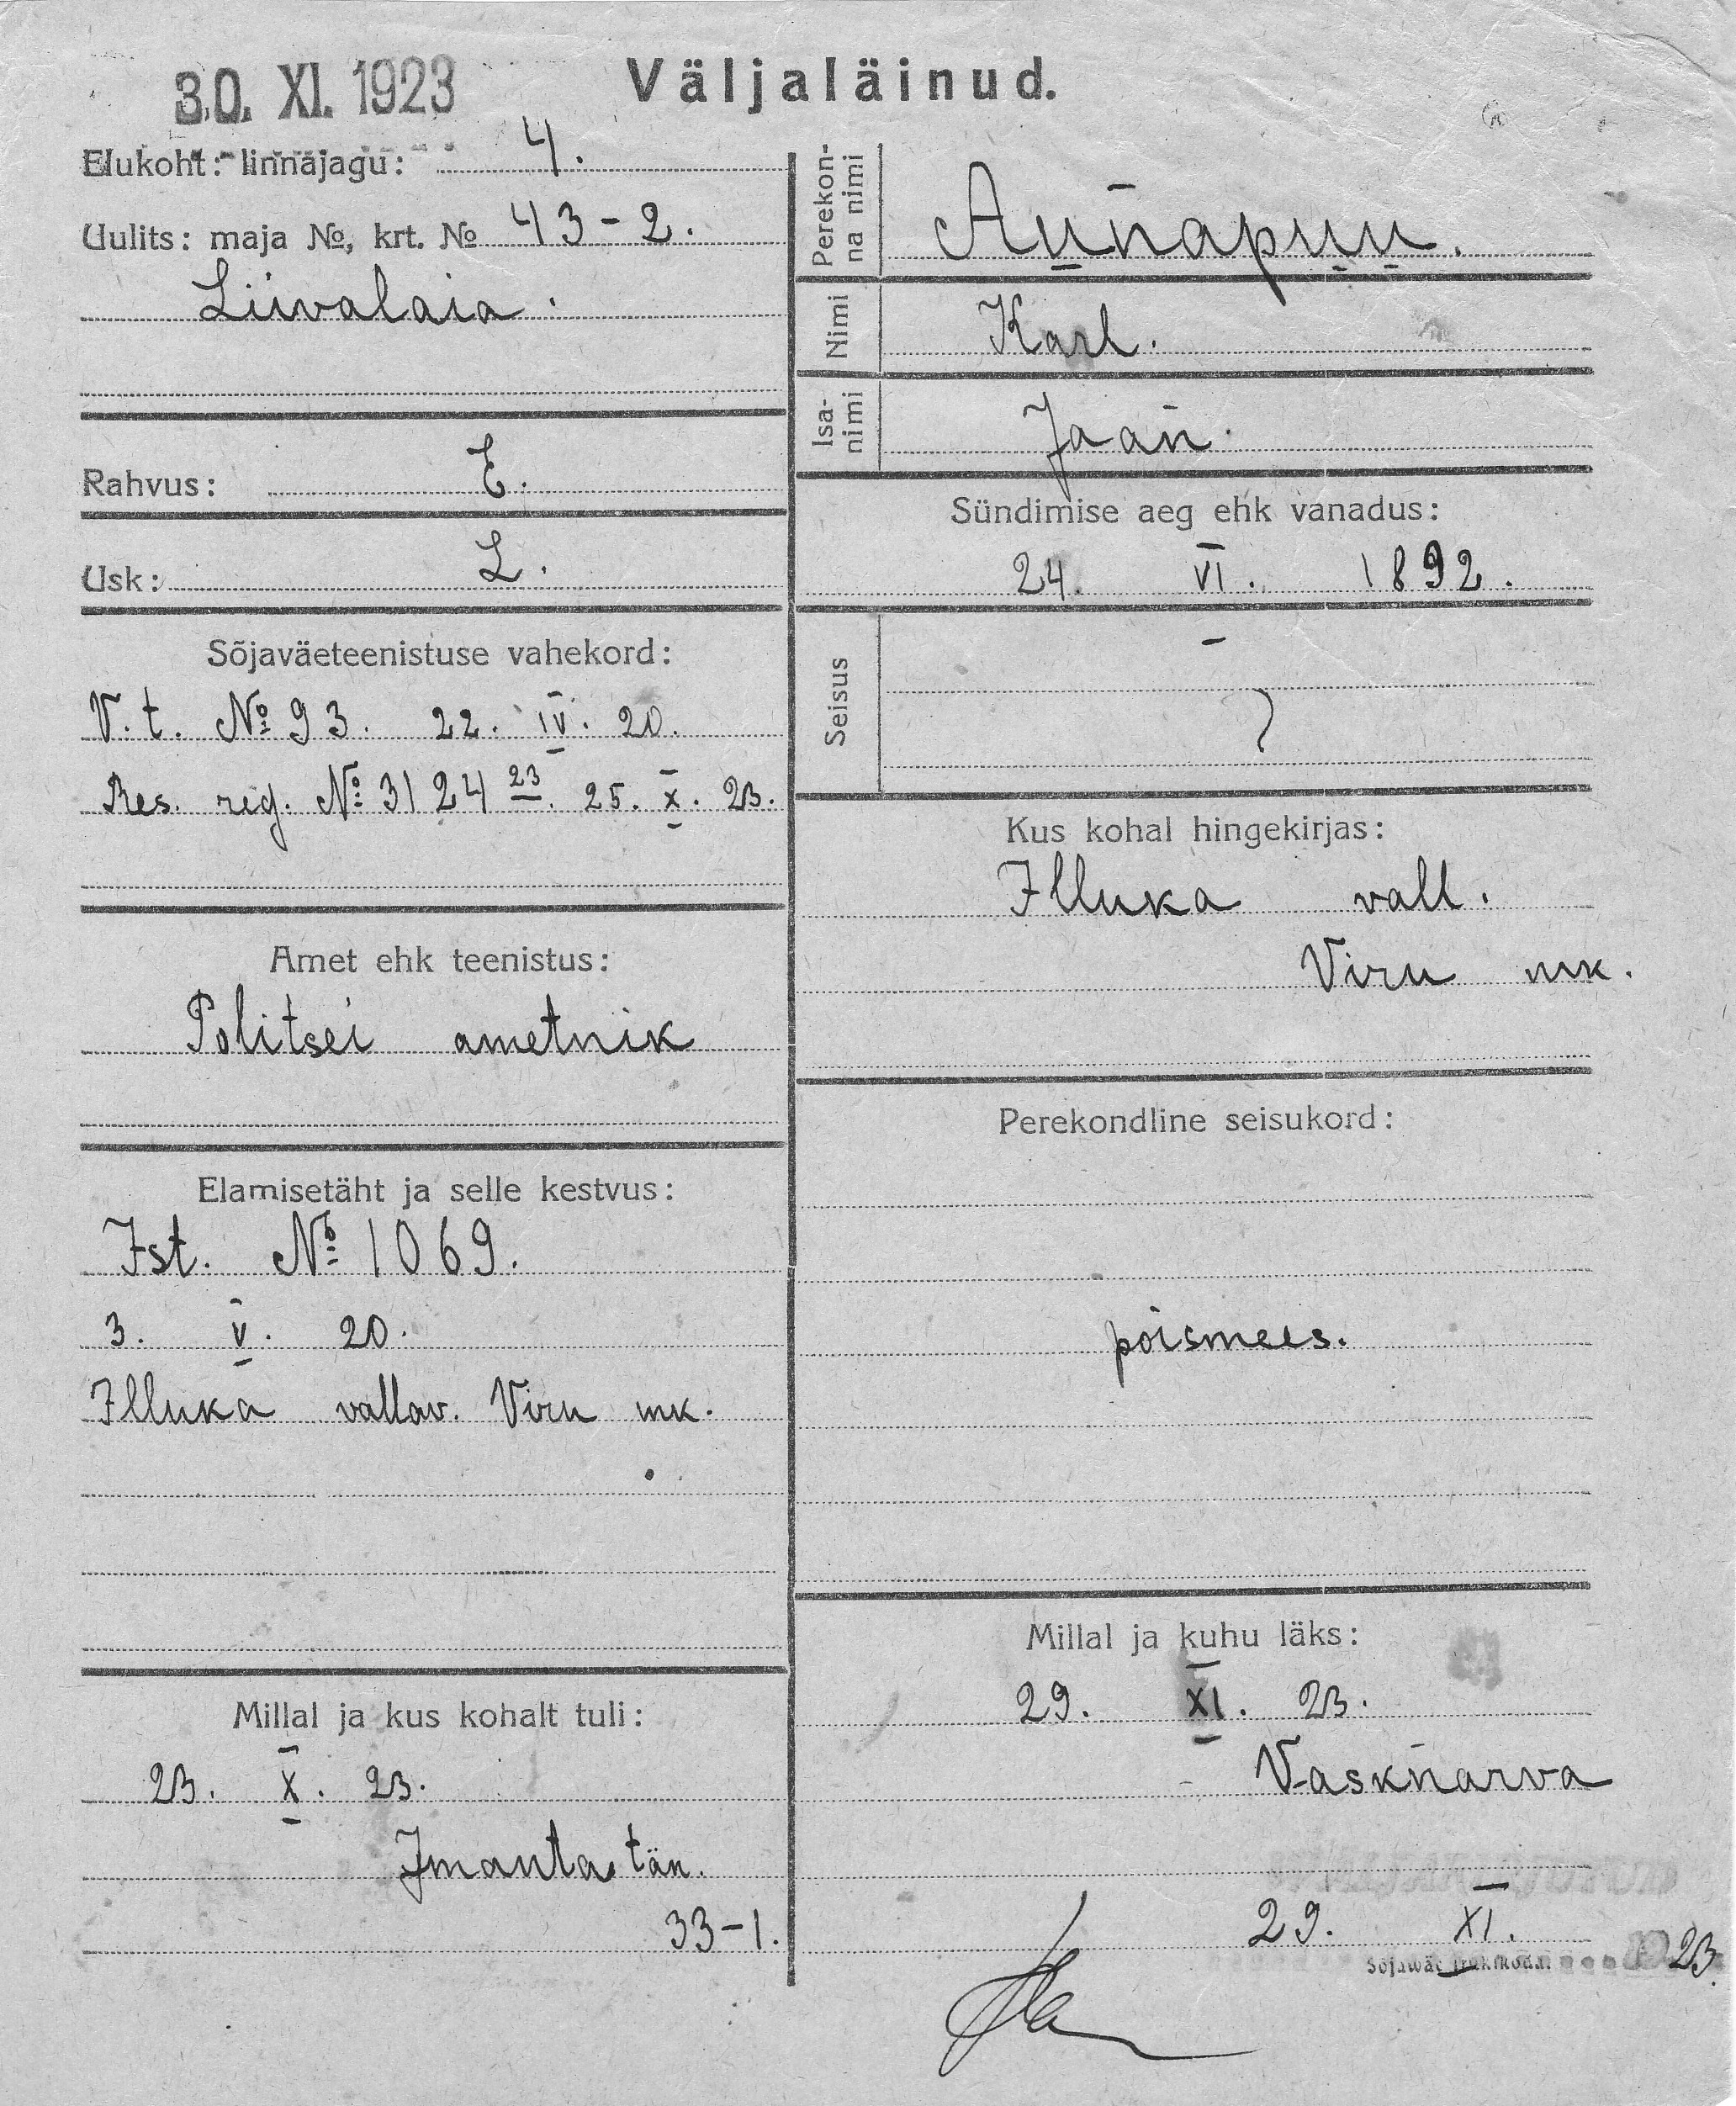 30. XI. 1923
Väljaläinud.
Elukoht: linnajagu: 4.
Uulits: maja №, krt. № 43-2.
Liivalaia.
Rahvus: E.
Usk: L.
Sõjaväeteenistuse vahekord:
V. t. № 93. 22. IV. 20.
Res. reg. № 3124 23. 25. X. 23.
Amet ehk teenistus:
Politsei ametnik
Elamisetäht ja selle kestvus:
Ist. № 1069.
3. V. 20.
Illuka vallav. Viru mk.
Millal ja kus kohalt tuli:
23. X. 23.
Imanta tän.
33-1.
Perekon-
na nimi
Aunapuu.
Nimi
Karl.
Isa-
nimi
Jaan.
Sündimise aeg ehk vanadus:
24. VI. 1892.
Seisus
Kus kohal hingekirjas:
Illuka vall.
Viru mk.
Perekondline seisukord:
poismees.
Millal ja kuhu läks:
29. XI. 23.
Vasknarva
29. XI. 23.